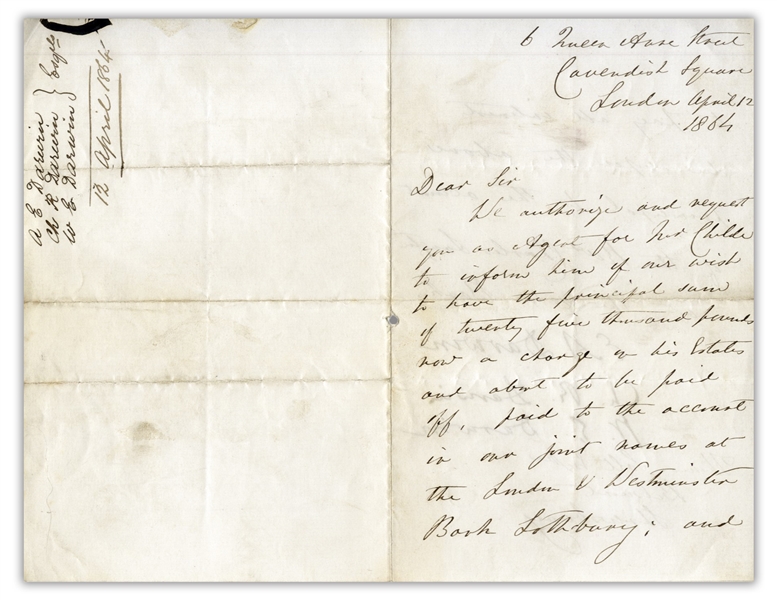 A E Darwin
Ch R Darwin } Esqrs
W E Darwin
12 April 1864
6 Queen Anne Street
Cavendish Square
London April 12
1864
Dear Sir
We authorize and request
you as Agent for Mr Childe
to inform him of our wish
to have the principal sum
of twenty five thousand pounds
now a charge on his Estates
and about to be paid
off, paid to the account
in our joint names at
the London & Westminster
Bank Lothbury; and